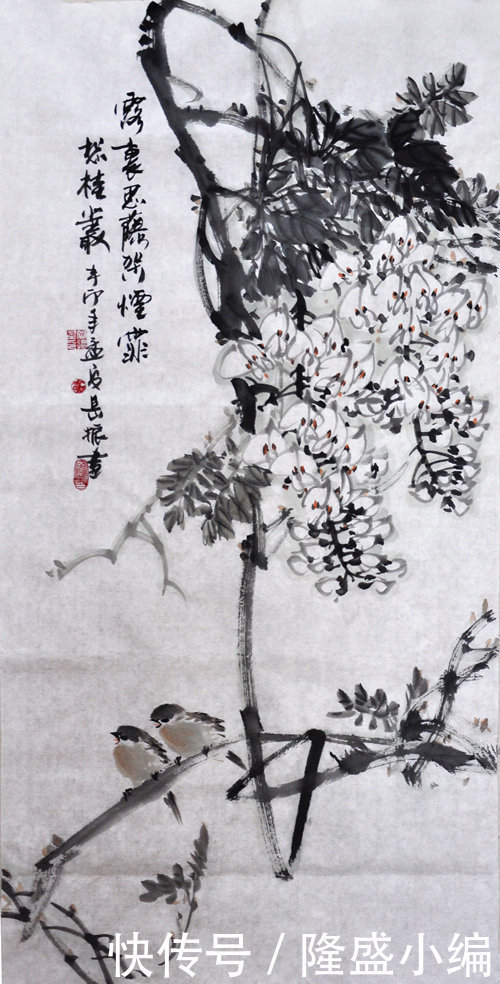 露裛思藤架煙霏
想桂叢 辛卯年孟夏岳振畫
快传号 / 隆盛小编